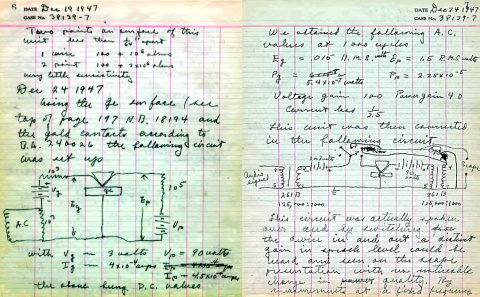 DATE Dec 19 1947
CASE No. 38139-7
Two points on surface of this
unit less than apart
1 wire 100 × 10⁶ ohms
2 point 100
very little sensitivity
Dec 24 1947
Using the Ge surface (see
top of page 197 N.B. 18194 and
the gold contacts according to
B.A. 240026 the following circuit
was set up
Vg
10³
Eg
Ge
Ep
10⁵
Vp
A.C
with Vg ~ 3 volts Vp = 90 volts
Ig = 4×10⁻³ amps
the above being D.C. values
DATE Dec 24 1947
CASE No. 38139-7
We attained the following A.C.
values at 1000 cycles
Eg = .015 R.M.S. volts Ep = 1.5 R.M.S volts
Pg = 5.4×10⁻⁷ watts Pp = 2.25×10⁻⁵
Voltage gain 100 Power gain 40
Current loss 1/2.5
This unit was then connected
in the following circuit
Audio signal
261 B
125,000:1000
261 B
125,000:1000
This circuit was actually spoken
over and by switching
the device in and out a distinct
gain in speech level could be
heard and seen on the scope
presentation with no noticeable
change in quality. By
measurements at a fixed frequency